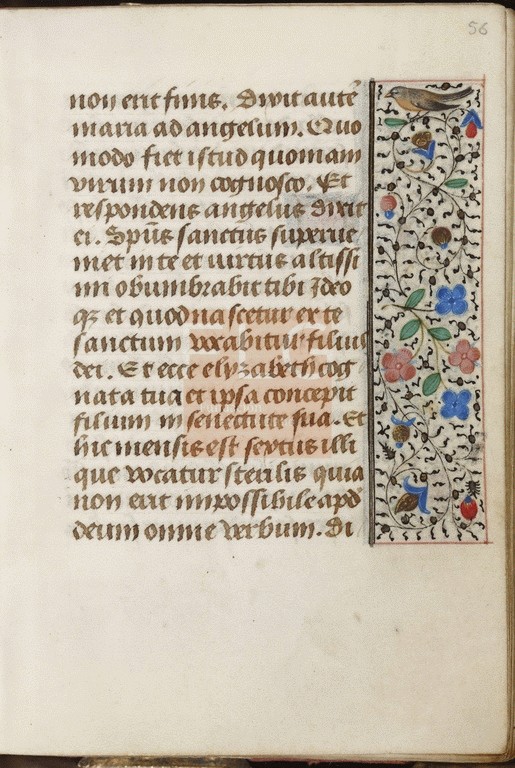 56
non erit finis. Dixit autē
maria ad angelum. Quo
modo fiet istud quoniam
virum non cognosco. Et
respondens angelus dixit
ei. Spūs sanctus superue
niet in te et uirtus altissi
mi obumbrabit tibi Ideo
qꝫ et quod nascetur ex te
sanctum vocabitur filius
dei. Et ecce elyzabeth cog
nata tua et ipsa concepit
filium in senectute sua. Et
hic mensis est sextus illi
que vocatur sterilis quia
non erit impossibile apd
deum omne verbum. Di